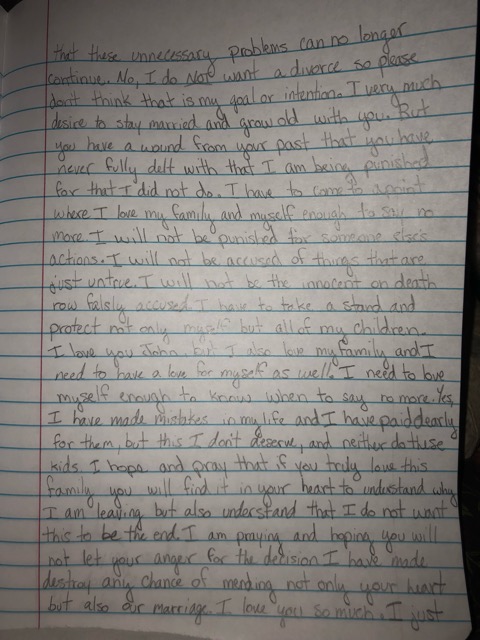 that these unnecessary problems can no longer
continue. No, I do Not want a divorce so please
don't think that is my goal or intention. I very much
desire to stay married and grow old with you. But
you have a wound from your past that you have
never fully delt with that I am being punished
for that I did not do. I have to come to a point
where I love my family and myself enough to say no
more. I will not be punished for someone else's
actions. I will not be accused of things that are
just untrue. I will not be the innocent on death
row falsly accused. I have to take a stand and
protect not only myself but all of my children.
I love you John, but I also love my family and I
need to have a love for myself as well. I need to love
myself enough to know when to say no more. Yes,
I have made mistakes in my life and I have paid dearly
for them, but this I don't deserve, and neither do these
kids. I hope and pray that if you truly love this
family you will find it in your heart to understand why
I am leaving but also understand that I do not want
this to be the end. I am praying and hoping you will
not let your anger for the decision I have made
destroy any chance of mending not only your heart
but also our marriage. I love you so much. I just